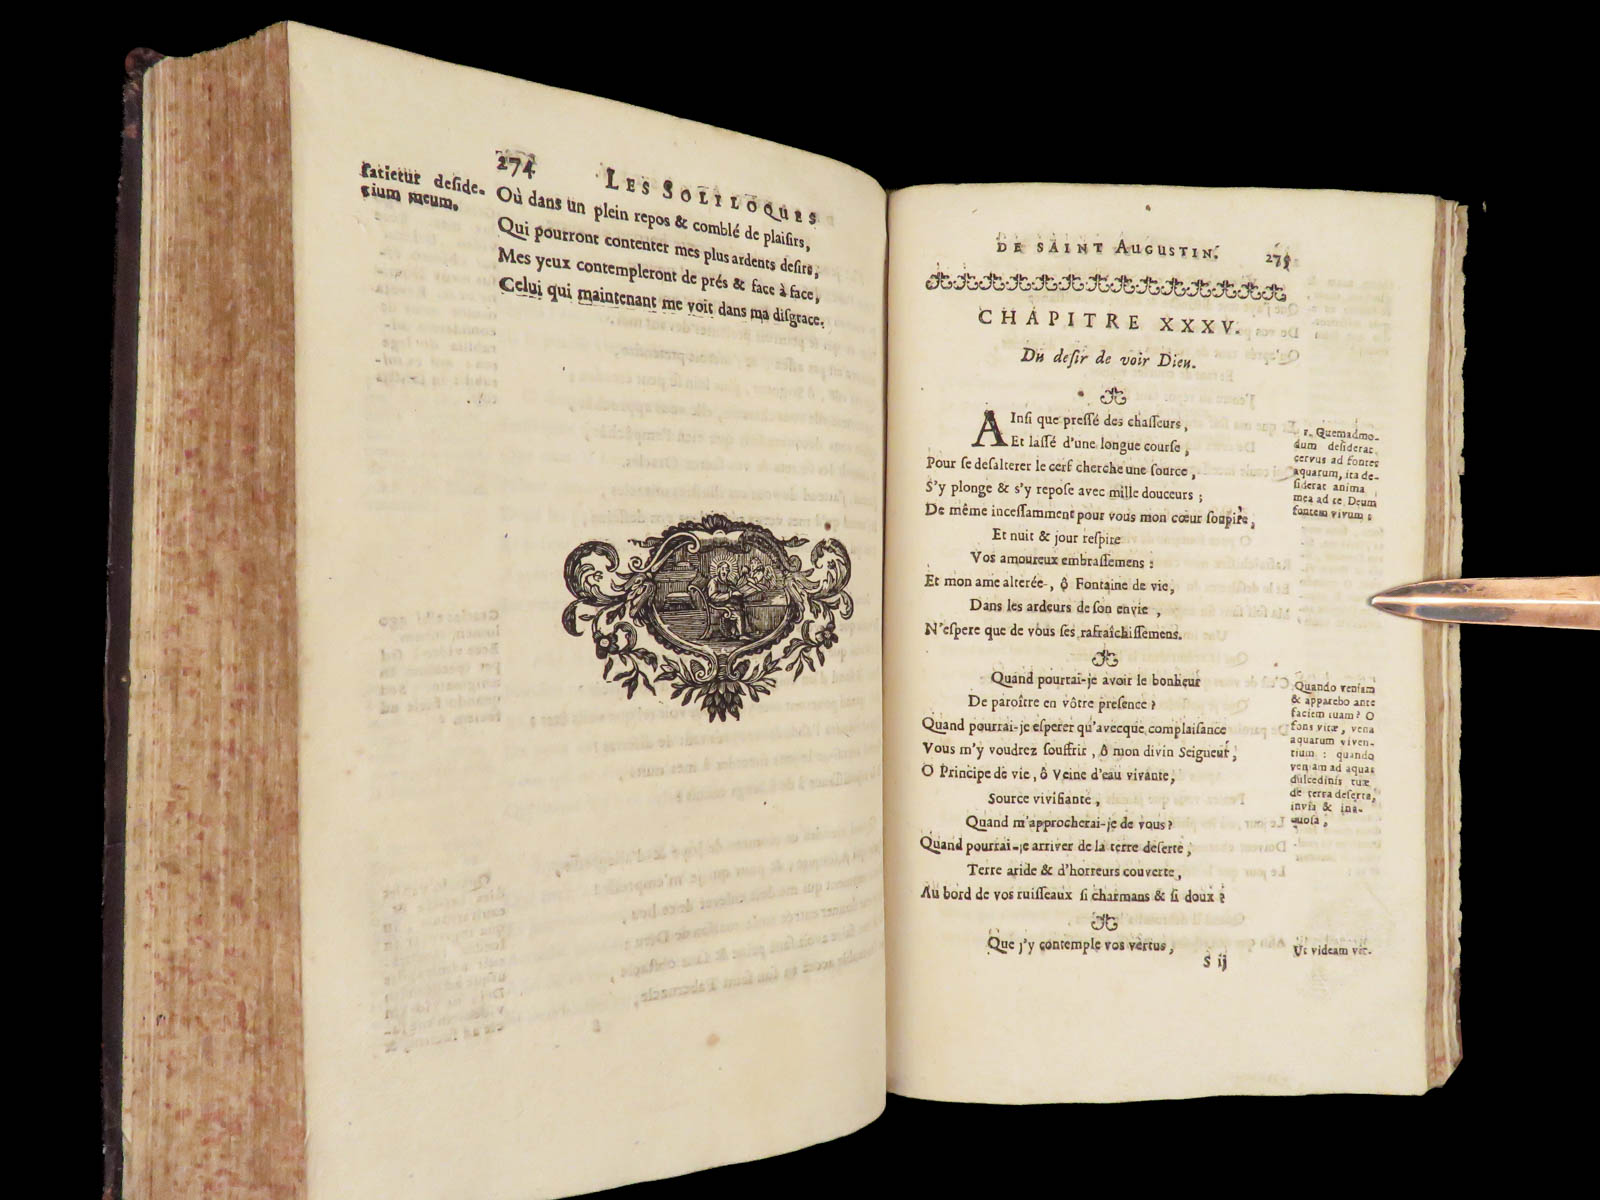 274 LES SOLILOQUES
ſatietur deſide-
rium meum.
Où dans un plein repos & comblé de plaiſirs,
Qui pourront contenter mes plus ardents deſirs,
Mes yeux contempleront de prés & face à face,
Celui qui maintenant me voit dans ma diſgrace.
DE SAINT AUGUSTIN. 275
CHAPITRE XXXV.
Du deſir de voir Dieu.
AInſi que preſſé des chaſſeurs,
Et laſſé d'une longue courſe,
Pour ſe deſalterer le cerf cherche une ſource,
S'y plonge & s'y repoſe avec mille douceurs;
De même inceſſamment pour vous mon cœur ſoupire,
Et nuit & jour reſpire
Vos amoureux embraſſemens:
Et mon ame alterée, ô Fontaine de vie,
Dans les ardeurs de ſon envie,
N'eſpere que de vous ſes rafraîchiſſemens.
1. Quemadmo-
dum deſiderat
cervus ad fontes
aquarum, ita de-
ſiderat anima
mea ad te Deum
fontem vivum:
Quand pourrai-je avoir le bonheur
De paroître en vôtre preſence?
Quand pourrai-je eſperer qu'avecque complaiſance
Vous m'y voudrez ſouffrir, ô mon divin Seigneur;
O Principe de vie, ô Veine d'eau vivante,
Source vivifiante,
Quand m'approcherai-je de vous?
Quand pourrai-je arriver de la terre deſerte,
Terre aride & d'horreurs couverte,
Au bord de vos ruiſſeaux ſi charmans & ſi doux?
Quando veniam
& apparebo ante
faciem tuam? O
fons vitæ, vena
aquarum viven-
tium: quando
veniam ad aquas
dulcedinis tuæ
de terra deſerta,
invia & ina-
quoſa,
Que j'y contemple vos vertus,
Ut videam vir-
S ij